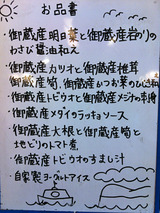 お品書
・御蔵産明日葉と御蔵産岩のりの
わさび醤油和え
・御蔵産カツオと御蔵産椎茸
御蔵産筍、御蔵産いつお菜のひたし和え
・御蔵産トビウオと御蔵産メジナの串揚
・御蔵産メダイのラッキョソース
・御蔵産大根と御蔵産筍と
地どりのトマト煮
・御蔵産トビウオのちまし汁
・自家製ヨーグルトアイス